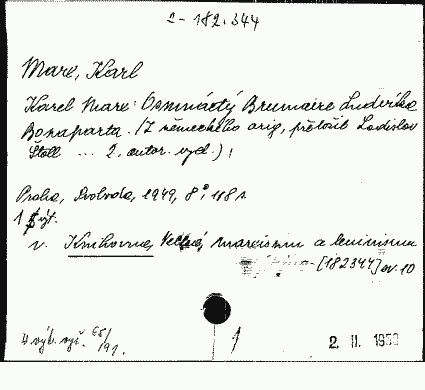 2-182.344
Marx, Karl
Karel Marx: Osmnáctý Brumaire Ludvíka
Bonaparta. /Z německého orig. přeložil Ladislav
Štoll ... 2. autor. vyd.)
Praha, Svoboda, 1949, 8°, 118 s.
1 výt.
v. Knihovna marxismu a leninismu
[182344] sv. 10
4 výb. vyš. 65/191.
1
2. II. 1950